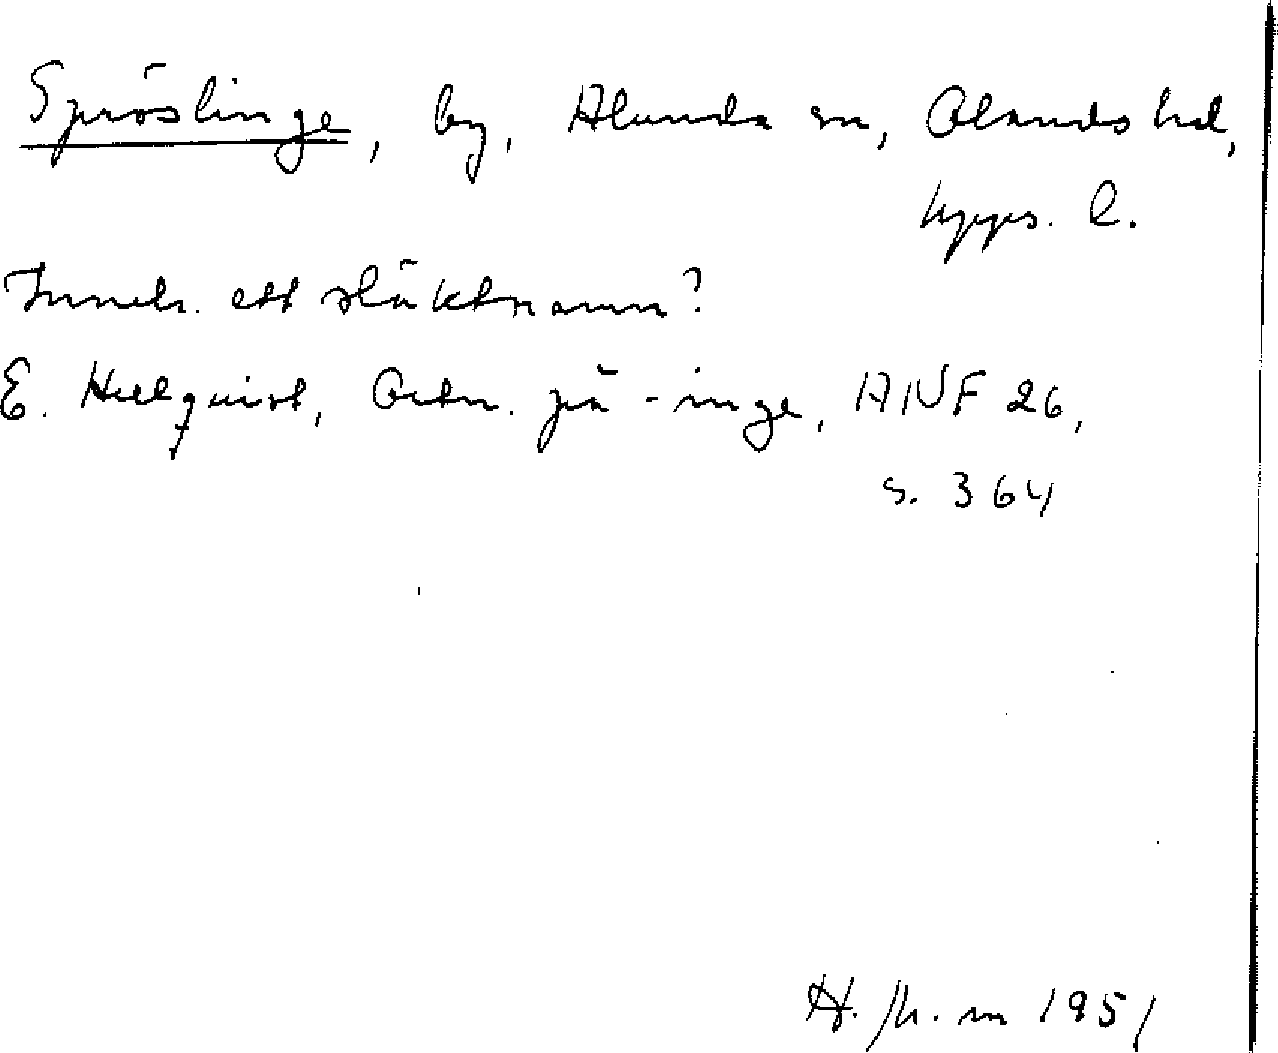 Spröslinge, by, Alunda sn, Olands hd,
Upps. l.
Inneh. ett släktnamn?
E. Hellquist, Ortn. på -inge, ANF 26,
s. 364
1951